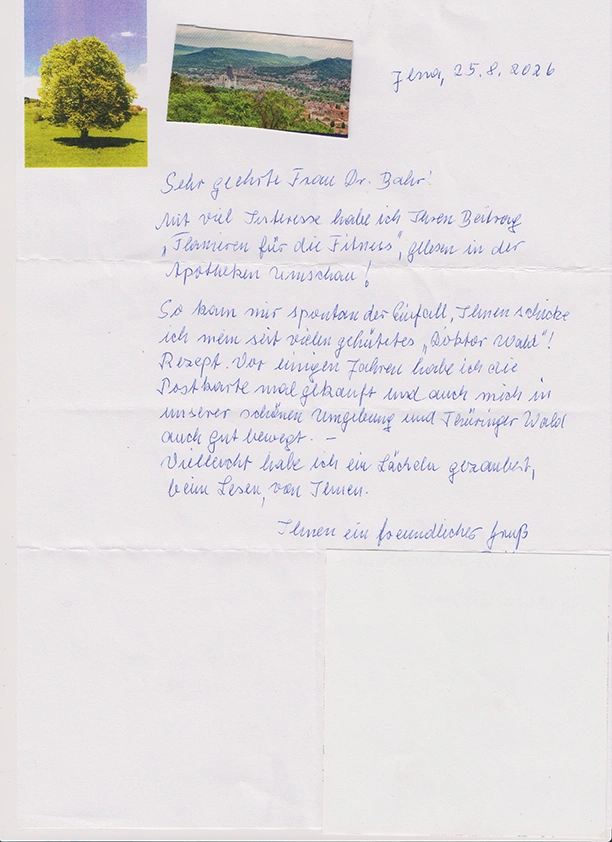 Jena, 25.8.2026
Sehr geehrte Frau Dr. Bahr!
Mit viel Interesse habe ich Ihren Beitrag
„Flanieren für die Fitness", gelesen in der
Apotheken Umschau!
So kam mir spontan der Einfall, Ihnen schicke
ich mein seit vielen gehütetes „Doktor Wald"!
Rezept. Vor einigen Jahren habe ich die
Postkarte mal gekauft und auch mich in
unserer schönen Umgebung und Thüringer Wald
auch gut bewegt. –
Vielleicht habe ich ein Lächeln gezaubert,
beim Lesen, von Ihnen.
Ihnen ein freundlicher Gruß